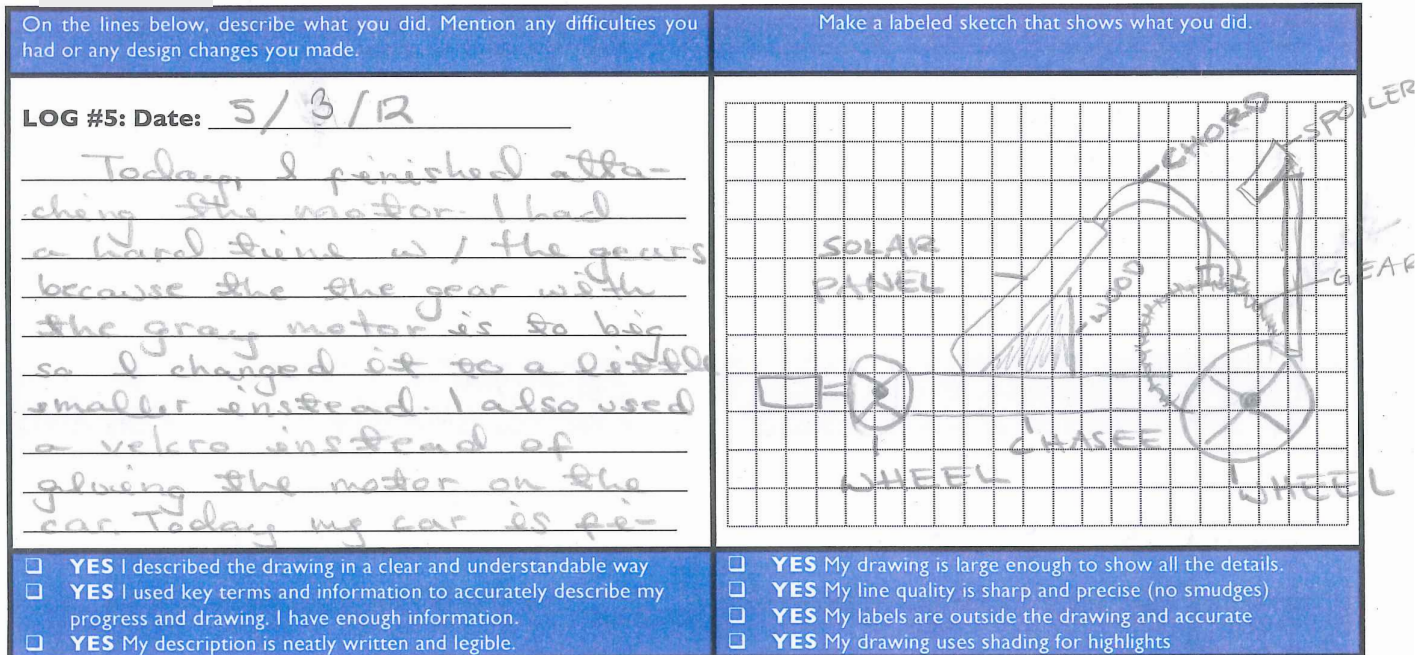 On the lines below, describe what you did. Mention any difficulties you
had or any design changes you made.
LOG #5: Date: 5/3/12
Today, I finished atta-
ching the motor. I had
a hard time w/ the gears
because the the gear with
the gray motor is to big
so I changed it to a little
smaller instead. I also used
a velcro instead of
gluing the motor on the
car. Today my car is fi-
YES I described the drawing in a clear and understandable way
YES I used key terms and information to accurately describe my
progress and drawing. I have enough information.
YES My description is neatly written and legible.
Make a labeled sketch that shows what you did.
CHORD
SPOILER
SOLAR
PANEL
WOOD
GEAR
CHASEE
WHEEL
WHEEL
YES My drawing is large enough to show all the details.
YES My line quality is sharp and precise (no smudges)
YES My labels are outside the drawing and accurate
YES My drawing uses shading for highlights